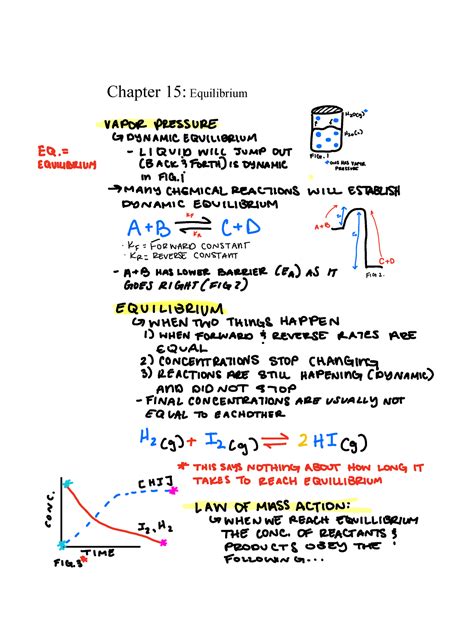 Chapter 15: Equilibrium
VAPOR PRESSURE
DYNAMIC EQUILIBRIUM
- LIQUID WILL JUMP OUT
(BACK & FORTH) IS DYNAMIC
IN FIG. 1
EQ. =
EQUILIBRIUM
H2O(g)
H2O(l)
FIG. 1
* GAS HAS VAPOR
PRESSURE
→ MANY CHEMICAL REACTIONS WILL ESTABLISH
DYNAMIC EQUILIBRIUM
A+B ⇌ C+D
KF
KR
· KF = FORWARD CONSTANT
· KR = REVERSE CONSTANT
A+B
C+D
FIG 2.
- A+B HAS LOWER BARRIER (EA) AS IT
GOES RIGHT (FIG 2)
EQUILIBRIUM
WHEN TWO THINGS HAPPEN
1) WHEN FORWARD & REVERSE RATES ARE
EQUAL
2) CONCENTRATIONS STOP CHANGING
3) REACTIONS ARE STILL HAPENING (DYNAMIC)
AND DID NOT STOP
- FINAL CONCENTRATIONS ARE USUALLY NOT
EQUAL TO EACHOTHER
H2(g) + I2(g) ⇌ 2 HI(g)
* THIS SAYS NOTHING ABOUT HOW LONG IT
TAKES TO REACH EQUILIBRIUM
CONC.
[HI]
I2, H2
TIME
FIG. 3*
LAW OF MASS ACTION:
WHEN WE REACH EQUILLIBRIUM
THE CONC. OF REACTANTS &
PRODUCTS OBEY THE
FOLLOWING...